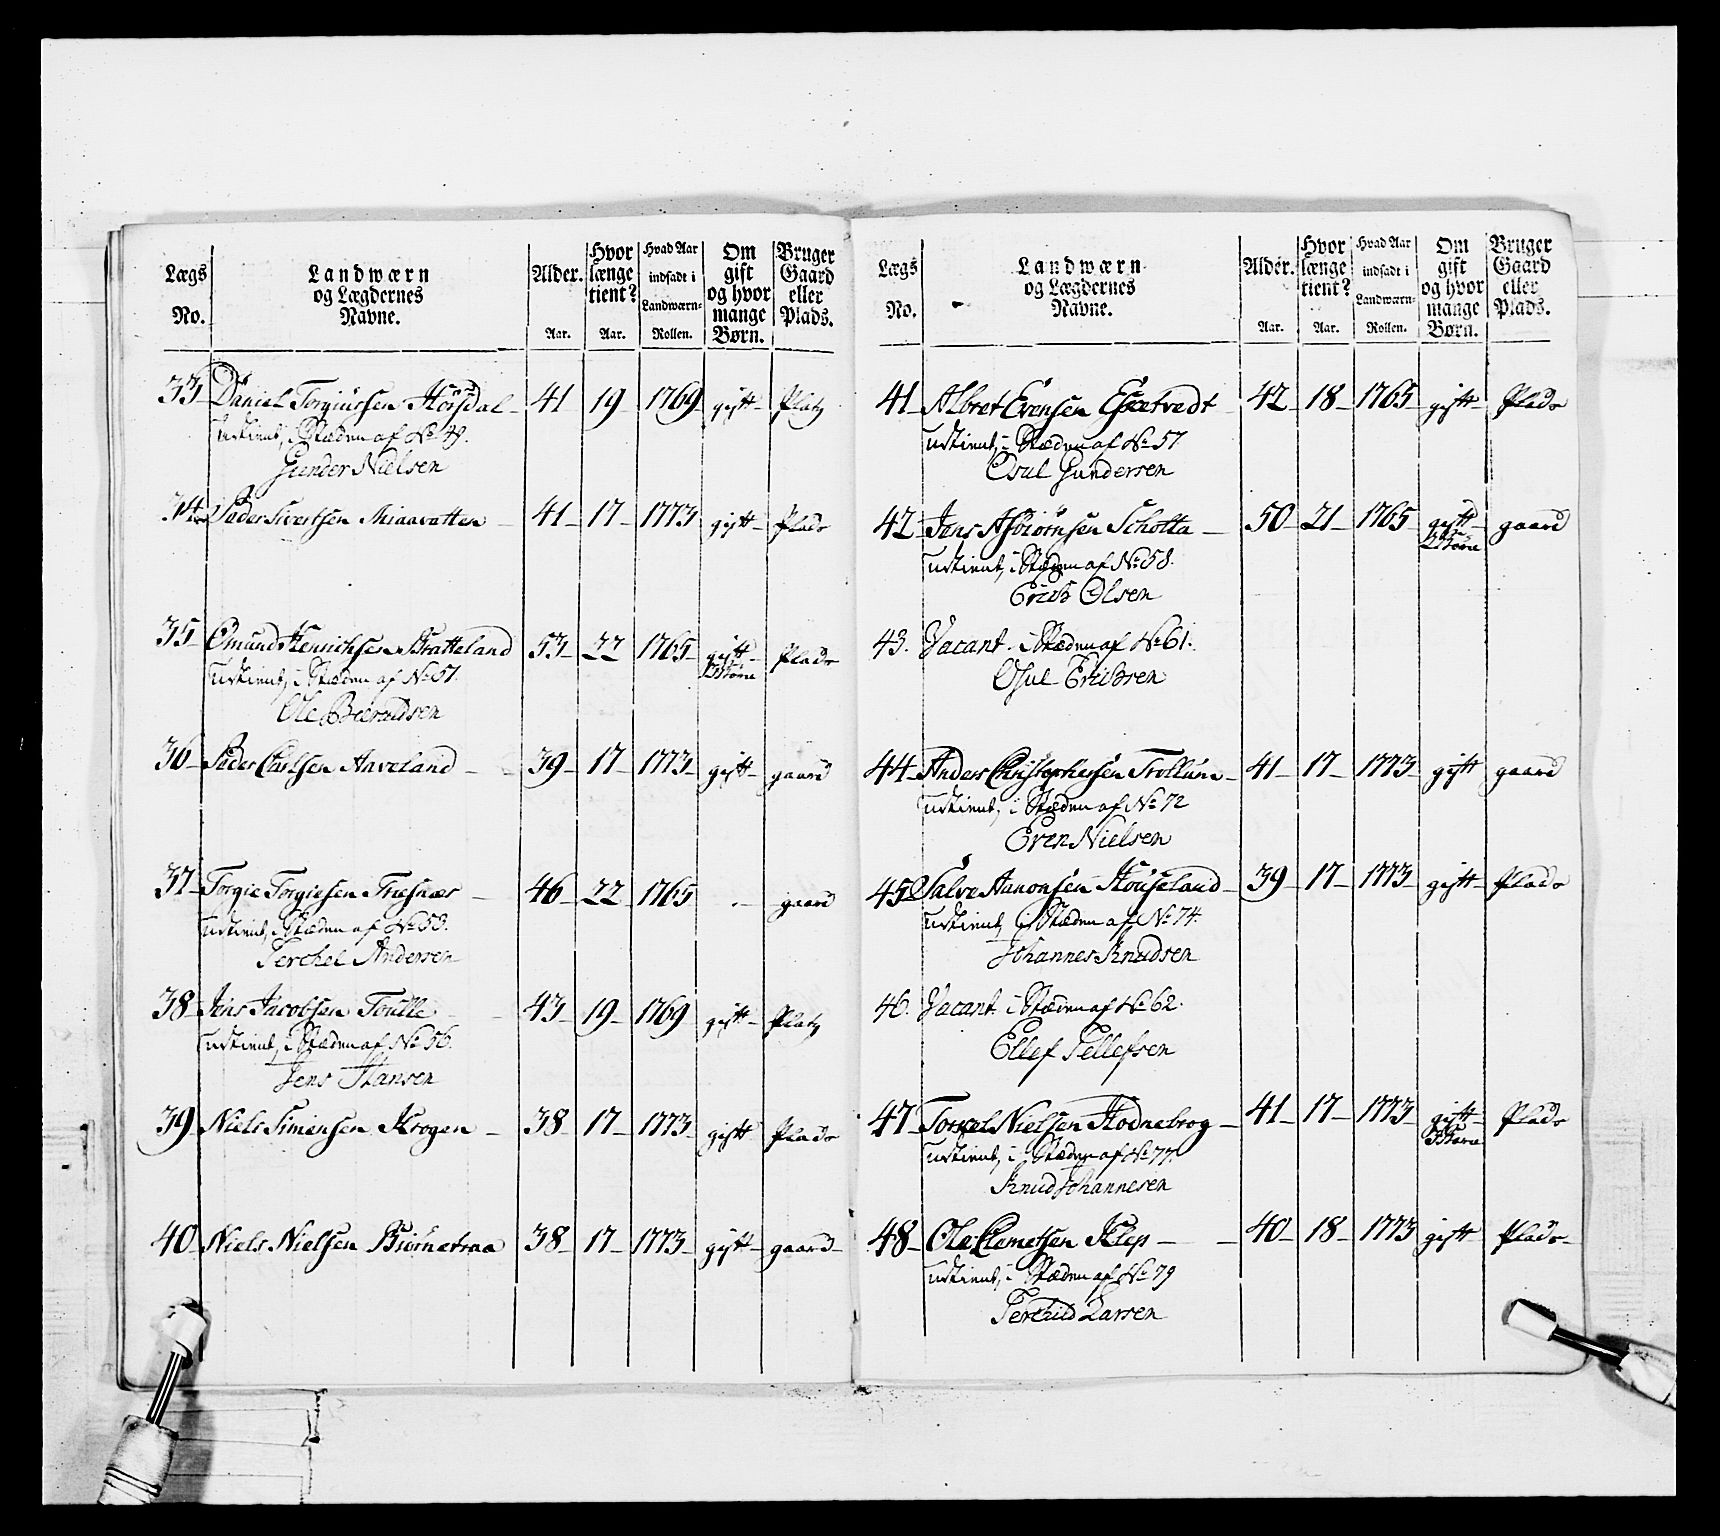 Lægs No. | Landwærn og Lægdernes Navne. | Alder. Aar. | Hvor længe tient? Aar. | Hvad Aar indsadt i Landwærn-Rollen. | Om gift og hvor mange Børn. | Bruger Gaard eller Plads.
33 Daniel Torgiursen Høysdal 41 19 1769 gift Platz
udtient, i Stæden af No 49.
Gunder Nielsen
34 Peder Sivertsen Miaavatten 41 17 1773 gift Plads
35 Omund Henrichsen Bratteland 53 22 1765 gift Børn Plads
udtient, i Stæden af No 51.
Ole
36 Peder Carlsen Aaveland 39 17 1773 gift gaard
37 Torgie Torgiesen Tresnær 46 22 1765 - gaard
udtient, i Stæden af No 53.
Terchel Andersen
38 Jens Jacobsen 43 19 1769 gift Platz
udtient, i Stæden af No 56.
Jens Hansen
39 Niels Simensen Krogen 38 17 1773 gift Plads
40 Niels Nielsen Biørnetraa 38 17 1773 gift gaard
Lægs No. | Landwærn og Lægdernes Navne. | Alder. Aar. | Hvor længe tient? Aar. | Hvad Aar indsadt i Landwærn-Rollen. | Om gift og hvor mange Børn. | Bruger Gaard eller Plads.
41 Albret Evensen 42 18 1765 gift Plads
udtient, i Stæden af No 57
Osul Gundersen
42 Jens Asbiørnsen Scholta 50 21 1765 gift 2 Børn gaard
udtient, i Stæden af No 58.
Erich Olsen
43. Vacant. i Stæden af No 61.
Osul Erichsen
44 Anders Christophersen Trollum 41 17 1773 gift gaard
udtient, i Stæden af No 72
Even Nielsen
45 Salve Aanonsen Houseland 39 17 1773 gift Plads
udtient, i Stæden af No 74.
Johannes Knudsen
46. Vacant. i Stæden af No 62.
Ellef Tellefsen
47 Torkel Nielsen Hodnebrog 41 17 1773 gift Børn Plads
udtient, i Stæden af No 77.
Knud Johannesen
48 Ole Clemetsen Klep 40 18 1773 gift Plads
udtient, i Stæden af No 79
Terchild Larsen